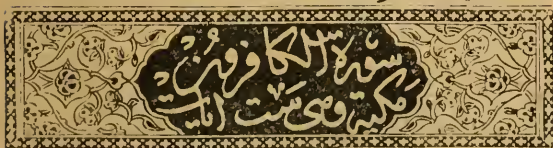 سورة الكافرون
مكية وهي ست آيات